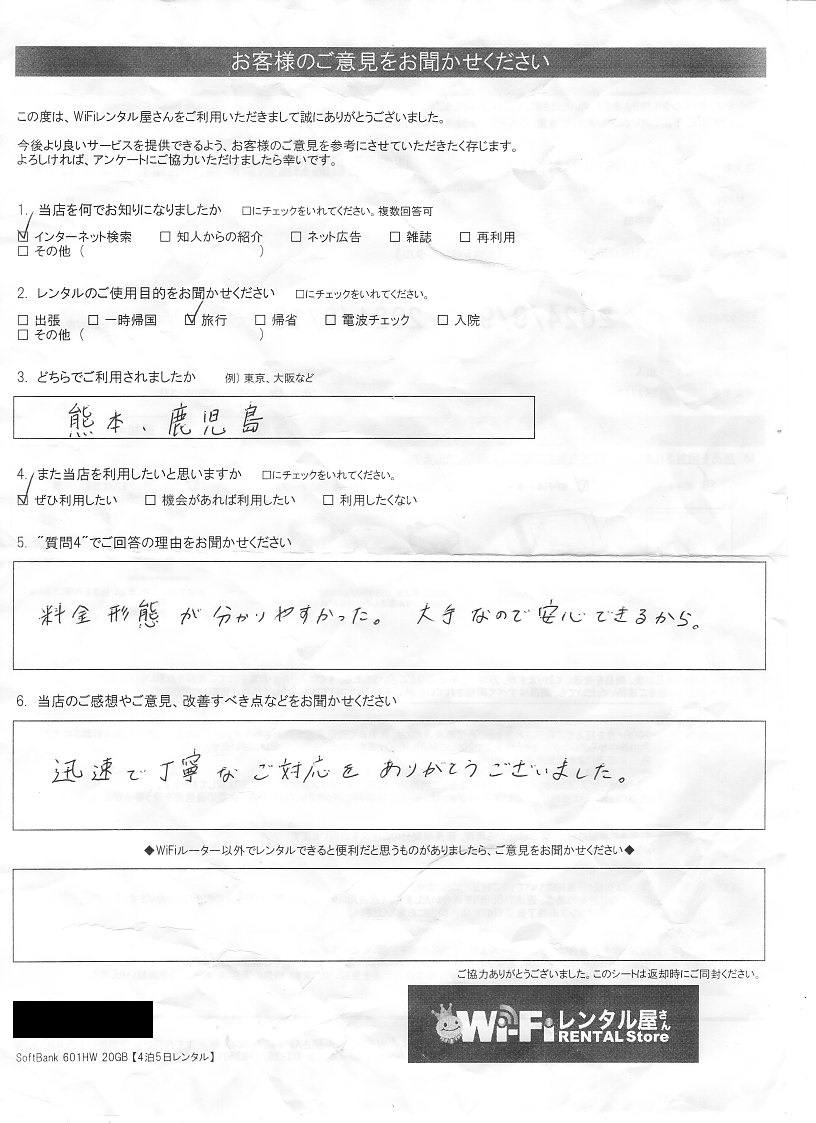 お客様のご意見をお聞かせください
この度は、WiFiレンタル屋さんをご利用いただきまして誠にありがとうございました。
今後より良いサービスを提供できるよう、お客様のご意見を参考にさせていただきたく存じます。
よろしければ、アンケートにご協力いただけましたら幸いです。
1. 当店を何でお知りになりましたか □にチェックをいれてください。複数回答可
☑ インターネット検索 □ 知人からの紹介 □ ネット広告 □ 雑誌 □ 再利用
□ その他 ( )
2. レンタルのご使用目的をお聞かせください □にチェックをいれてください。
□ 出張 □ 一時帰国 ☑ 旅行 □ 帰省 □ 電波チェック □ 入院
□ その他 ( )
3. どちらでご利用されましたか 例) 東京、大阪など
熊本、鹿児島
4. また当店を利用したいと思いますか □にチェックをいれてください。
☑ ぜひ利用したい □ 機会があれば利用したい □ 利用したくない
5. "質問4"でご回答の理由をお聞かせください
料金形態が分かりやすかった。大手なので安心できるから。
6. 当店のご感想やご意見、改善すべき点などをお聞かせください
迅速で丁寧なご対応をありがとうございました。
◆WiFiルーター以外でレンタルできると便利だと思うものがありましたら、ご意見をお聞かせください◆
ご協力ありがとうございました。このシートは返却時にご同封ください。
Wi-Fiレンタル屋さん
RENTAL Store
SoftBank 601HW 20GB【4泊5日レンタル】